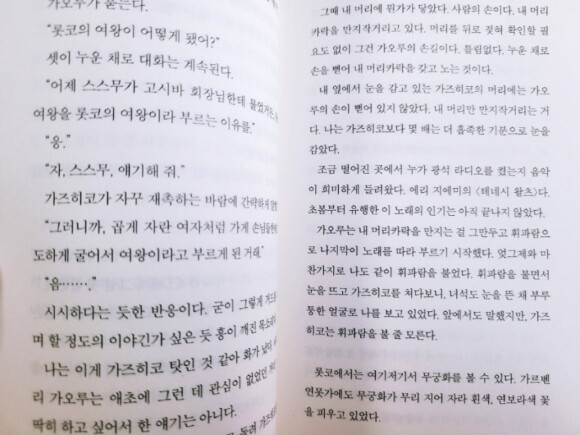 가오루가 묻는다.
“롯코의 여왕이 어떻게 됐어?”
셋이 누운 채로 대화는 계속된다.
“어제 스스무가 고시바 회장님한테 물었거든,
여왕을 롯코의 여왕이라 부르는 이유를.”
“응.”
“자, 스스무, 얘기해 줘.”
가즈히코가 자꾸 재촉하는 바람에 간략하게
“그러니까, 곱게 자란 여자처럼 가게 손님들한테
도하게 굴어서 여왕이라고 부르게 된 거래.”
“음…….”
시시하다는 듯한 반응이다. 굳이 그렇게
며 할 정도의 이야긴가 싶은 듯 흥이 깨진 목소리
나는 이게 가즈히코 탓인 것 같아 화가 났다.
리 가오루는 애초에 그런 데 관심이 없었던
딱히 하고 싶어서 한 얘기는 아니다.
그때 내 머리에 뭔가가 닿았다. 사람의 손이다. 내 머리
카락을 만지작거리고 있다. 머리를 뒤로 젖혀 확인할 필
요도 없이 그건 가오루의 손길이다. 틀림없다. 누운 채로
손을 뻗어 내 머리카락을 갖고 노는 것이다.
내 옆에서 눈을 감고 있는 가즈히코의 머리에는 가오
루의 손이 뻗어 있지 않았다. 내 머리만 만지작거리는 거
다. 나는 가즈히코보다 몇 배는 더 흡족한 기분으로 눈을
감았다.
조금 떨어진 곳에서 누가 광석 라디오를 켰는지 음악
이 희미하게 들려왔다. 에리 지에미의 〈테네시 왈츠〉다.
초봄부터 유행한 이 노래의 인기는 아직 끝나지 않았다.
가오루는 내 머리카락을 만지는 걸 그만두고 휘파람으
로 나지막이 노래를 따라 부르기 시작했다. 엊그제와 마
찬가지로 나도 같이 휘파람을 불었다. 휘파람을 불면서
눈을 뜨고 가즈히코를 쳐다보니, 녀석도 눈을 뜬 채 부루
퉁한 얼굴로 나를 보고 있었다. 앞에서도 말했지만, 가즈
히코는 휘파람을 불 줄 모른다.
롯코에서는 여기저기서 무궁화를 볼 수 있다. 가르벤
연못가에도 무궁화가 무리 지어 자라 흰색, 연보라색 꽃
을 피우고 있었다.